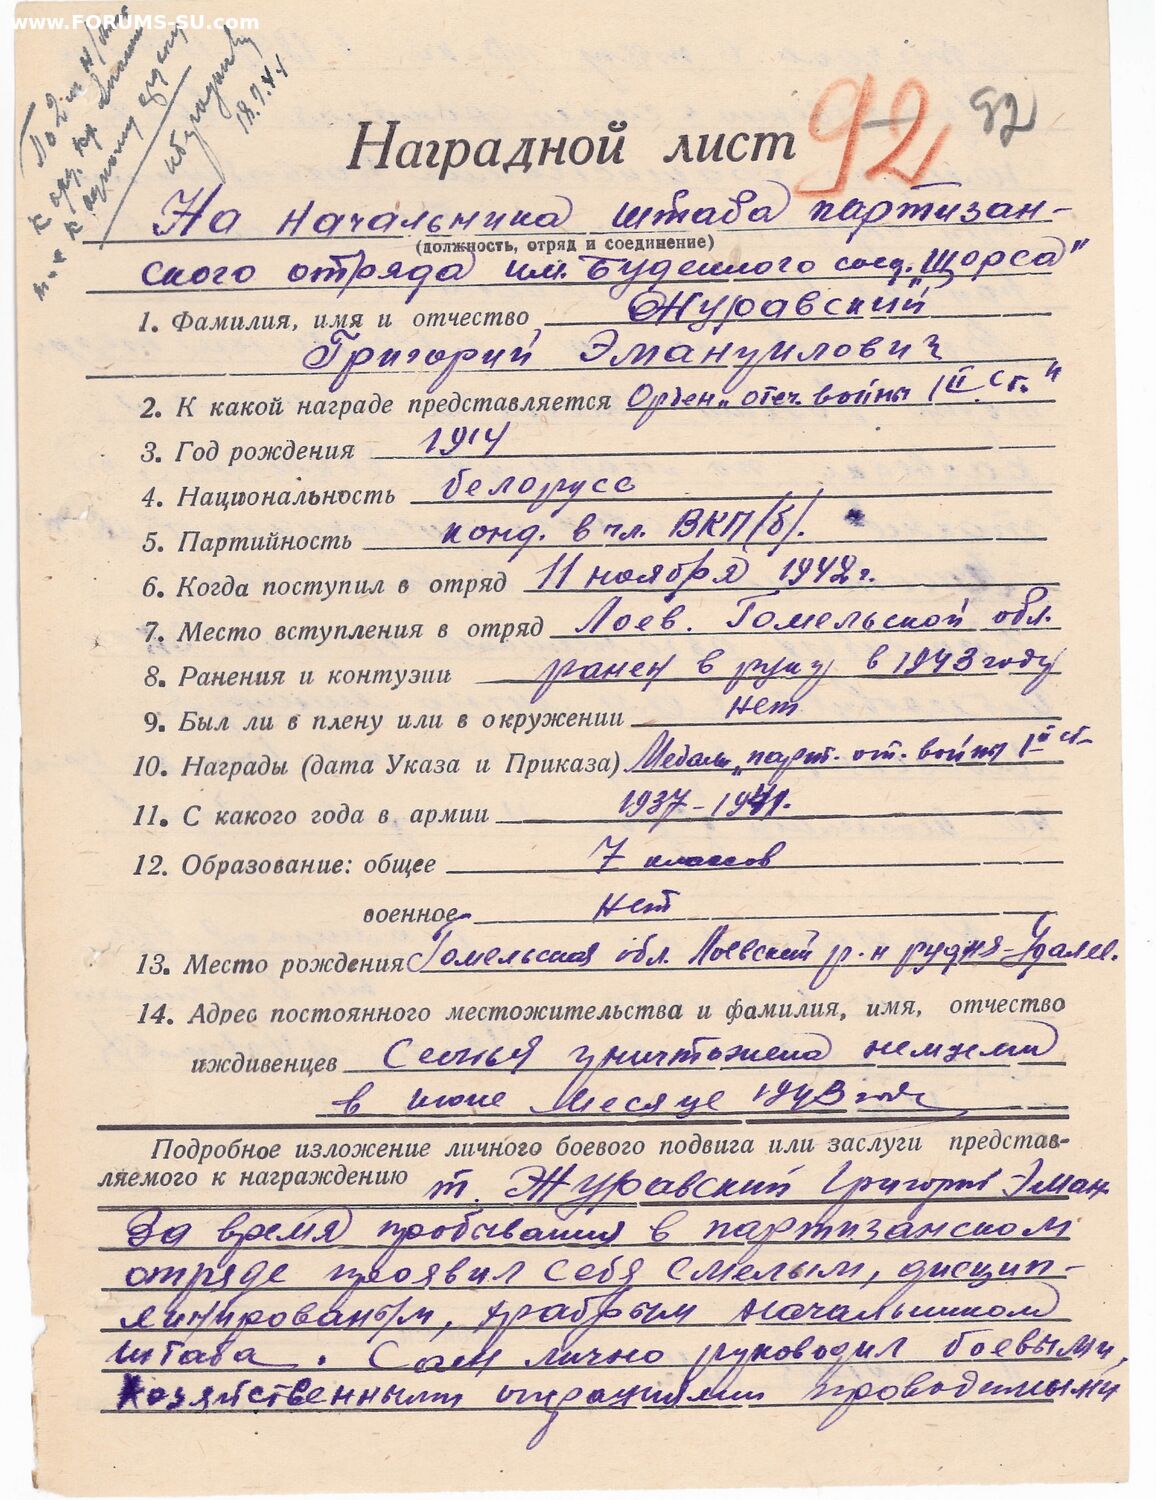 www.FORUMS-SU.com
18.9.44
92
92
Наградной лист
На начальника штаба партизан-
(должность, отряд и соединение)
ского отряда им. Буденного соед. „Щорса"
1. Фамилия, имя и отчество Журавский
Григорий Эмануилович
2. К какой награде представляется Орден „отеч. войны II ст."
3. Год рождения 1914
4. Национальность белорусс
5. Партийность канд. в чл. ВКП/б/.
6. Когда поступил в отряд 11 ноября 1942 г.
7. Место вступления в отряд Лоев. Гомельской обл.
8. Ранения и контузии ранен в руку в 1943 году
9. Был ли в плену или в окружении нет
10. Награды (дата Указа и Приказа) Медаль „парт. от. войны II ст-
11. С какого года в армии 1937-1941.
12. Образование: общее 7 классов
военное нет
13. Место рождения Гомельская обл. Лоевский р-н рудня-Удалев.
14. Адрес постоянного местожительства и фамилия, имя, отчество
иждивенцев Семья уничтожена немцами
в июне месяце 1943 года
Подробное изложение личного боевого подвига или заслуги представ-
ляемого к награждению т. Журавский Григорий Эман.
За время пробывания в партизанском
отряде проявил себя смелым, дисцип-
линированым, храбрым начальником
штаба. Сам лично руководил боевыми,
хозяйственными операциями проводимыми